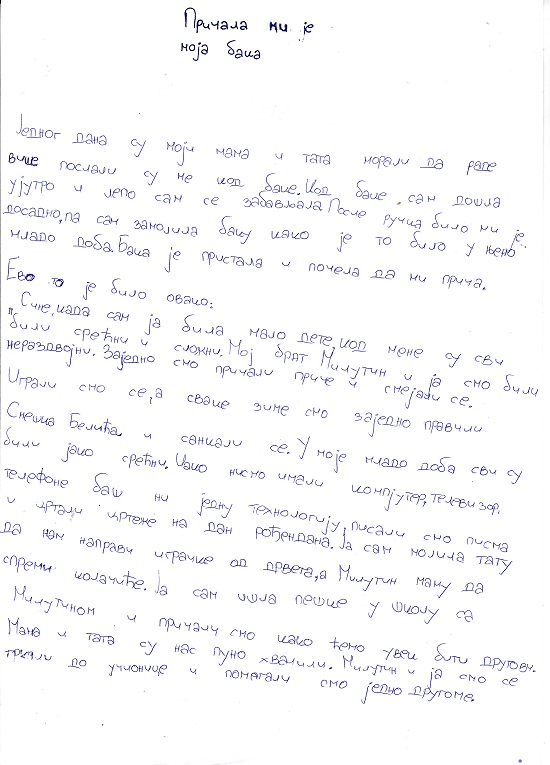 Причала ми је
моја бака
Једног дана су моји мама и тата морали да раде
више послали су ме код баке. Код баке сам дошла
ујутро и лепо сам се забављала. После ручка било ми је
досадно, па сам замолила баку како је то било у њено
младо доба. Бака је пристала и почела да ми прича.
Ево то је било овако:
"Сине, када сам ја била мало дете, код мене су сви
били срећни и сложни. Мој брат Милутин и ја смо били
нераздвојни. Заједно смо причали приче и смејали се.
Играли смо се, а сваке зиме смо заједно правили
Снешка Белића и санкали се. У моје младо доба сви су
били јако срећни. Иако нисмо имали компјутер, телевизор,
телефоне баш ни једну технологију, писали смо писма
и цртали цртеже на дан рођендана. Ја сам молила тату
да нам направи играчке од дрвета, а Милутин маму да
спреми колачиће. Ја сам ишла пешке у школу са
Милутином и причали смо како ћемо увек бити другови.
Мама и тата су нас пуно хвалили. Милутин и ја смо се
тркали до учионице и помагали смо једно другоме.